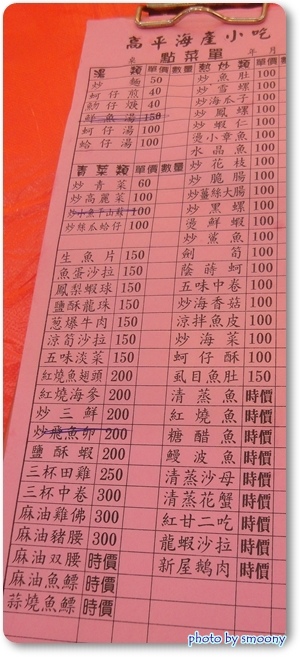 高平海產小吃
點菜單
桌 年 月
湯類 單價 數量
炒麵 50
蚵仔煎 40
蚵仔湯 100
蛤仔湯 100
青菜類 單價 數量
炒青菜 60
炒高麗菜 100
炒小魚干山蘇 100
炒絲瓜蛤仔 100
生魚片 150
魚蛋沙拉 150
鳳梨蝦球 150
鹽酥龍珠 150
葱爆牛肉 150
涼筍沙拉 150
五味淡菜 150
紅燒魚翅頭 200
紅燒海參 200
炒三鮮 200
炒飛魚卵 200
鹽酥蝦 200
三杯田雞 250
三杯中卷 300
麻油雞佛 300
麻油豬腰 300
麻油双腰 時價
麻油魚鰾 時價
蒜燒魚鰾 時價
熱炒類 單價 數量
炒魚肚 100
炒雪螺 100
炒海瓜子 100
炒鳳螺 100
炒蝦仁 100
燙小章魚 100
水晶魚 100
炒花枝 100
炒脆腸 100
炒薑絲大腸 100
炒黑螺 100
燙鮮蝦 100
炒鯊魚 100
劍筍 100
蔭蒔蚵 100
五味中卷 100
炒海香菇 100
涼拌魚皮 100
炒海菜 100
蚵仔酥 100
虱目魚肚 150
清蒸魚 時價
紅燒魚 時價
糖醋魚 時價
鰻波魚 時價
清蒸沙母 時價
清蒸花蟹 時價
紅甘二吃 時價
龍蝦沙拉 時價
新屋鵝肉 時價
photo by smoony